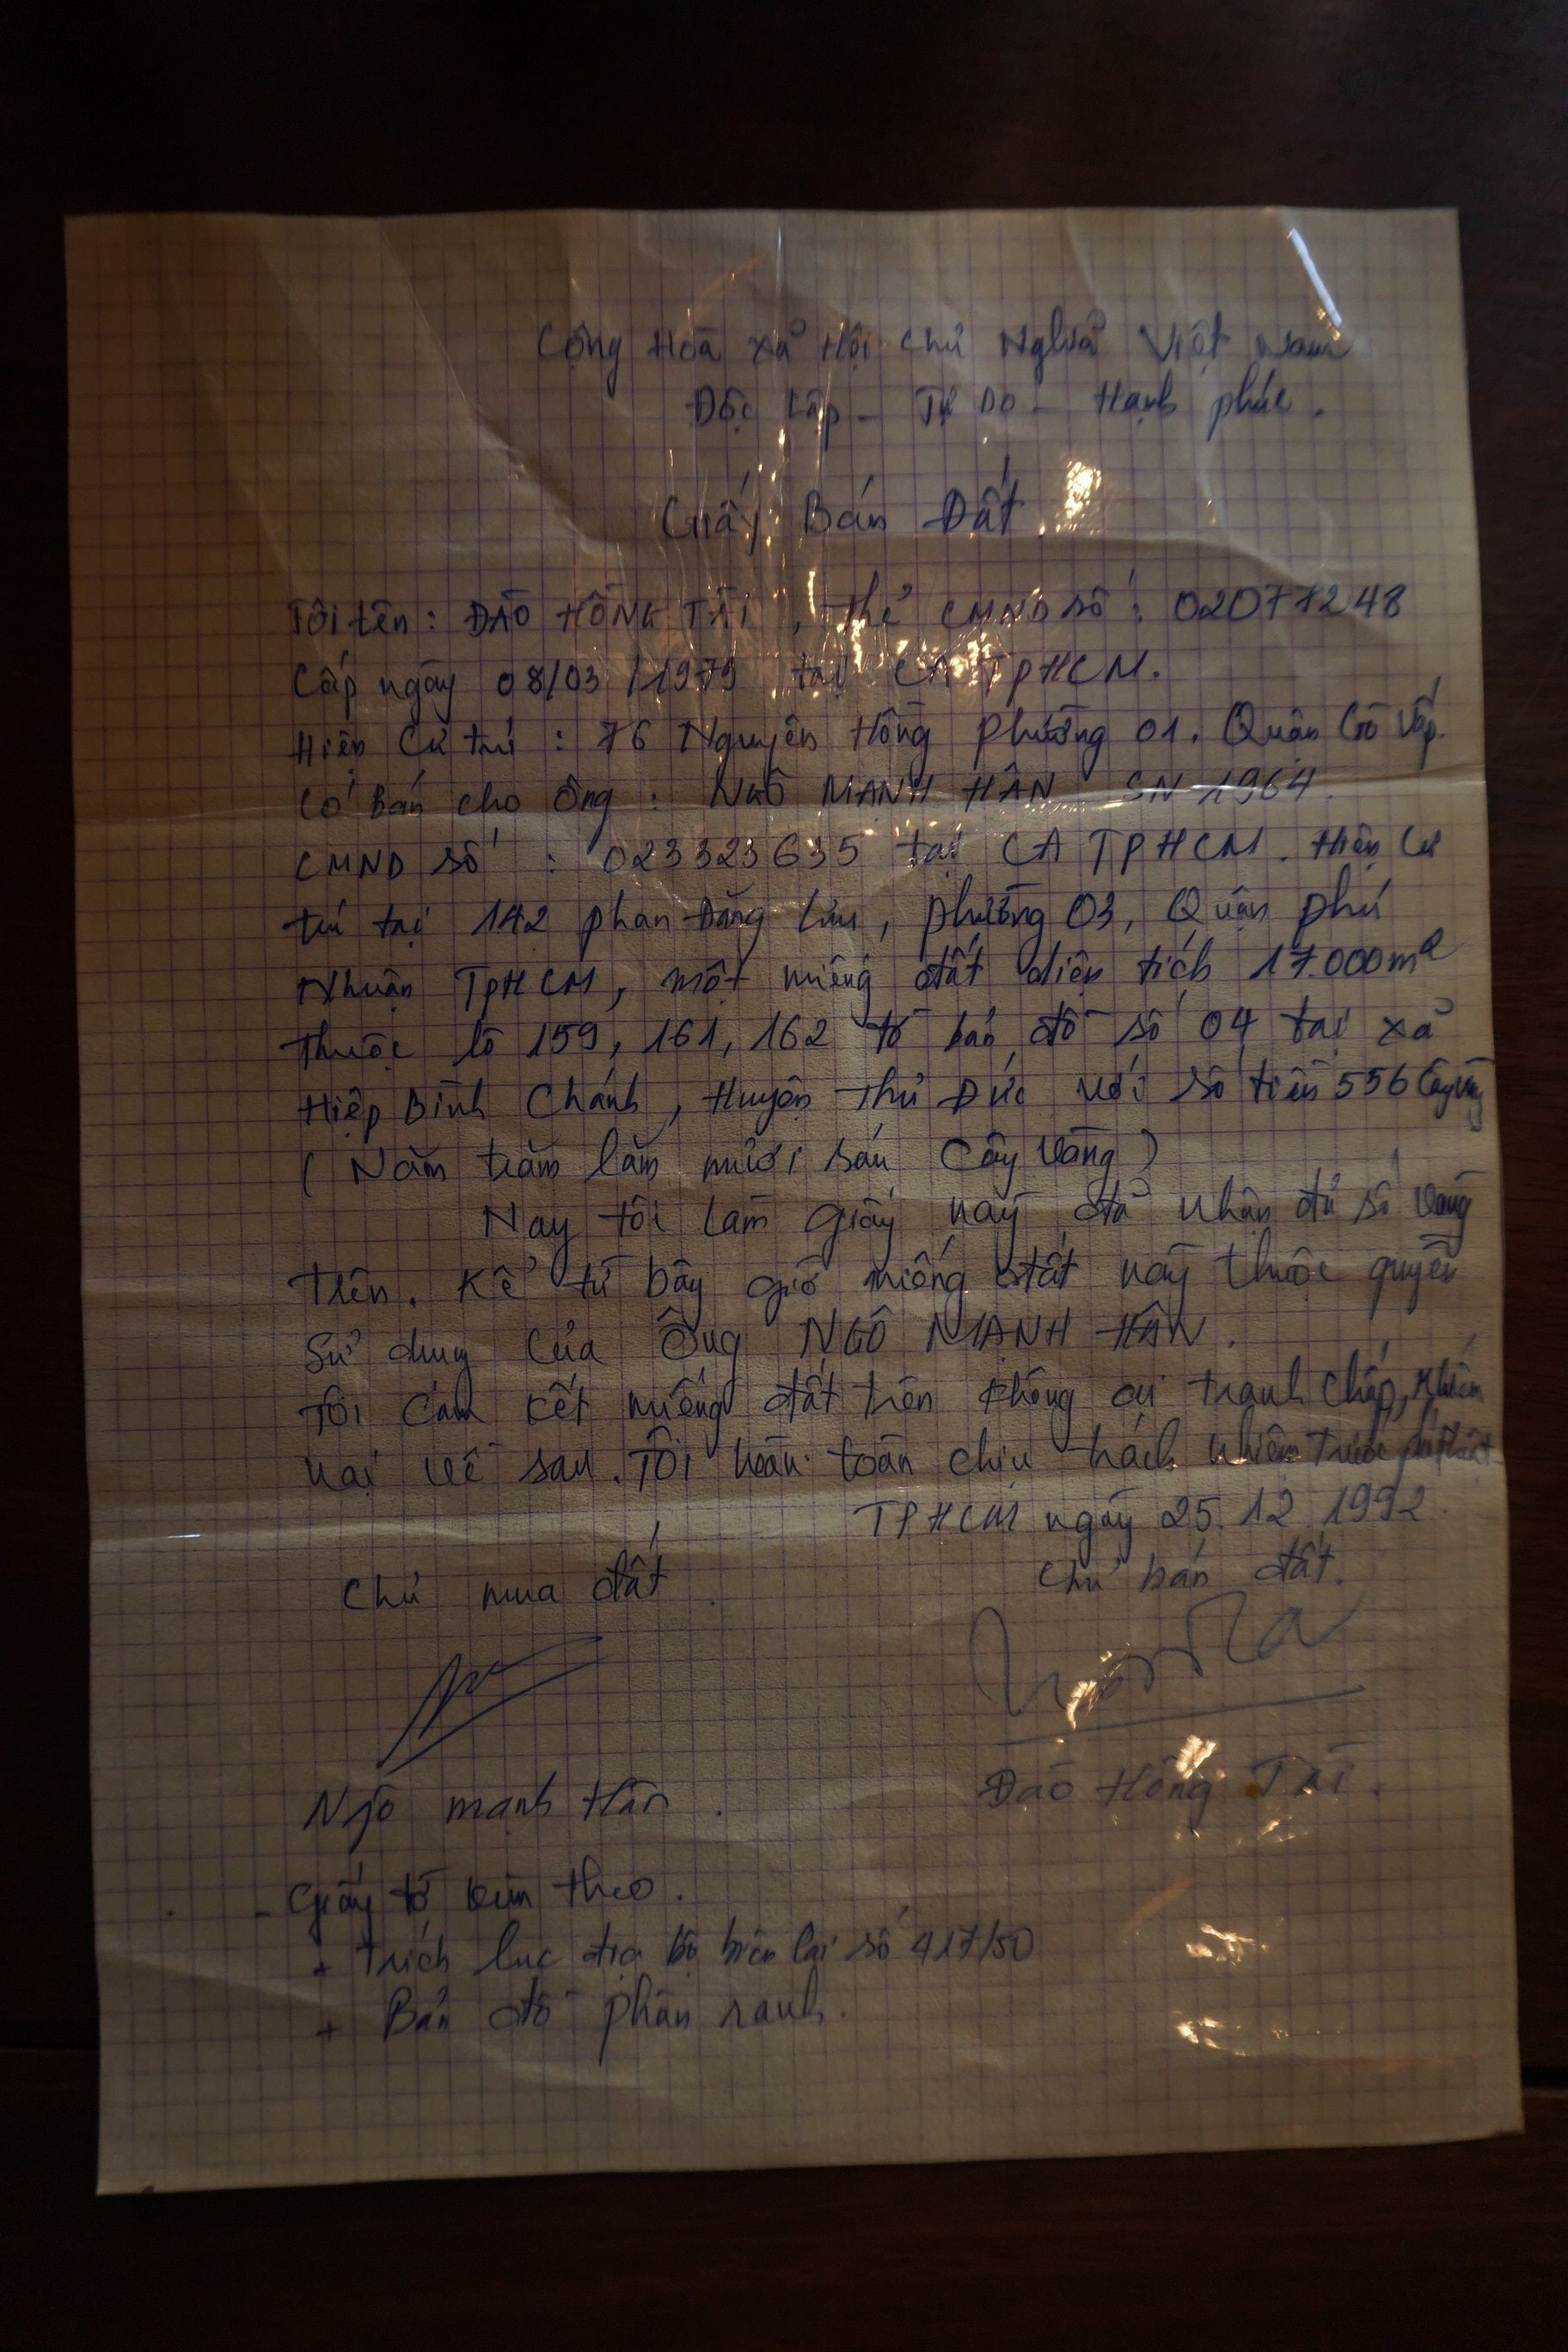 Cộng Hòa Xả Hội Chủ Nghĩa Việt Nam
Độc Lập - Tự Do - Hạnh phúc.
Giấy Bán Đất
Tôi tên: ĐÀO HỒNG TÀI, thẻ CMND số: 020771248
Cấp ngày 08/03/1979 tại CA TPHCM.
Hiện Cư trú: 76 Nguyên Hồng phường 01. Quận Gò Vấp.
Có bán cho Ông: NGÔ MẠNH HÂN SN 1964.
CMND số: 023323635 tại CA TPHCM. Hiện Cư
trú tại 142 phan Đăng Lưu, phường 03, Quận phú
Nhuận TpHCM, một miếng đất diện tích 17.000m2
thuộc lô 159, 161, 162 tờ bản đồ số 04 tại xả
Hiệp Bình Chánh, Huyện Thủ Đức với số tiền 556 Cây vàng
(Năm trăm lăm mươi sáu Cây Vàng)
Nay tôi làm giấy này đả nhận đủ số vàng
trên. Kể từ bây giờ miếng đất này thuộc quyền
Sử dụng của Ông NGÔ MẠNH HÂN.
Tôi Cam Kết miếng đất trên không ai tranh chấp, khiếu
nại về sau. Tôi hoàn toàn chịu trách nhiệm trước
TPHCM ngày 25.12.1992.
Chủ mua đất.
Chủ bán đất.
Ngô mạnh Hân.
Đào Hồng Tài.
- Giấy tờ kèm theo.
+ Trích lục địa bộ biên lai số 417/50
+ Bản đồ phân ranh.